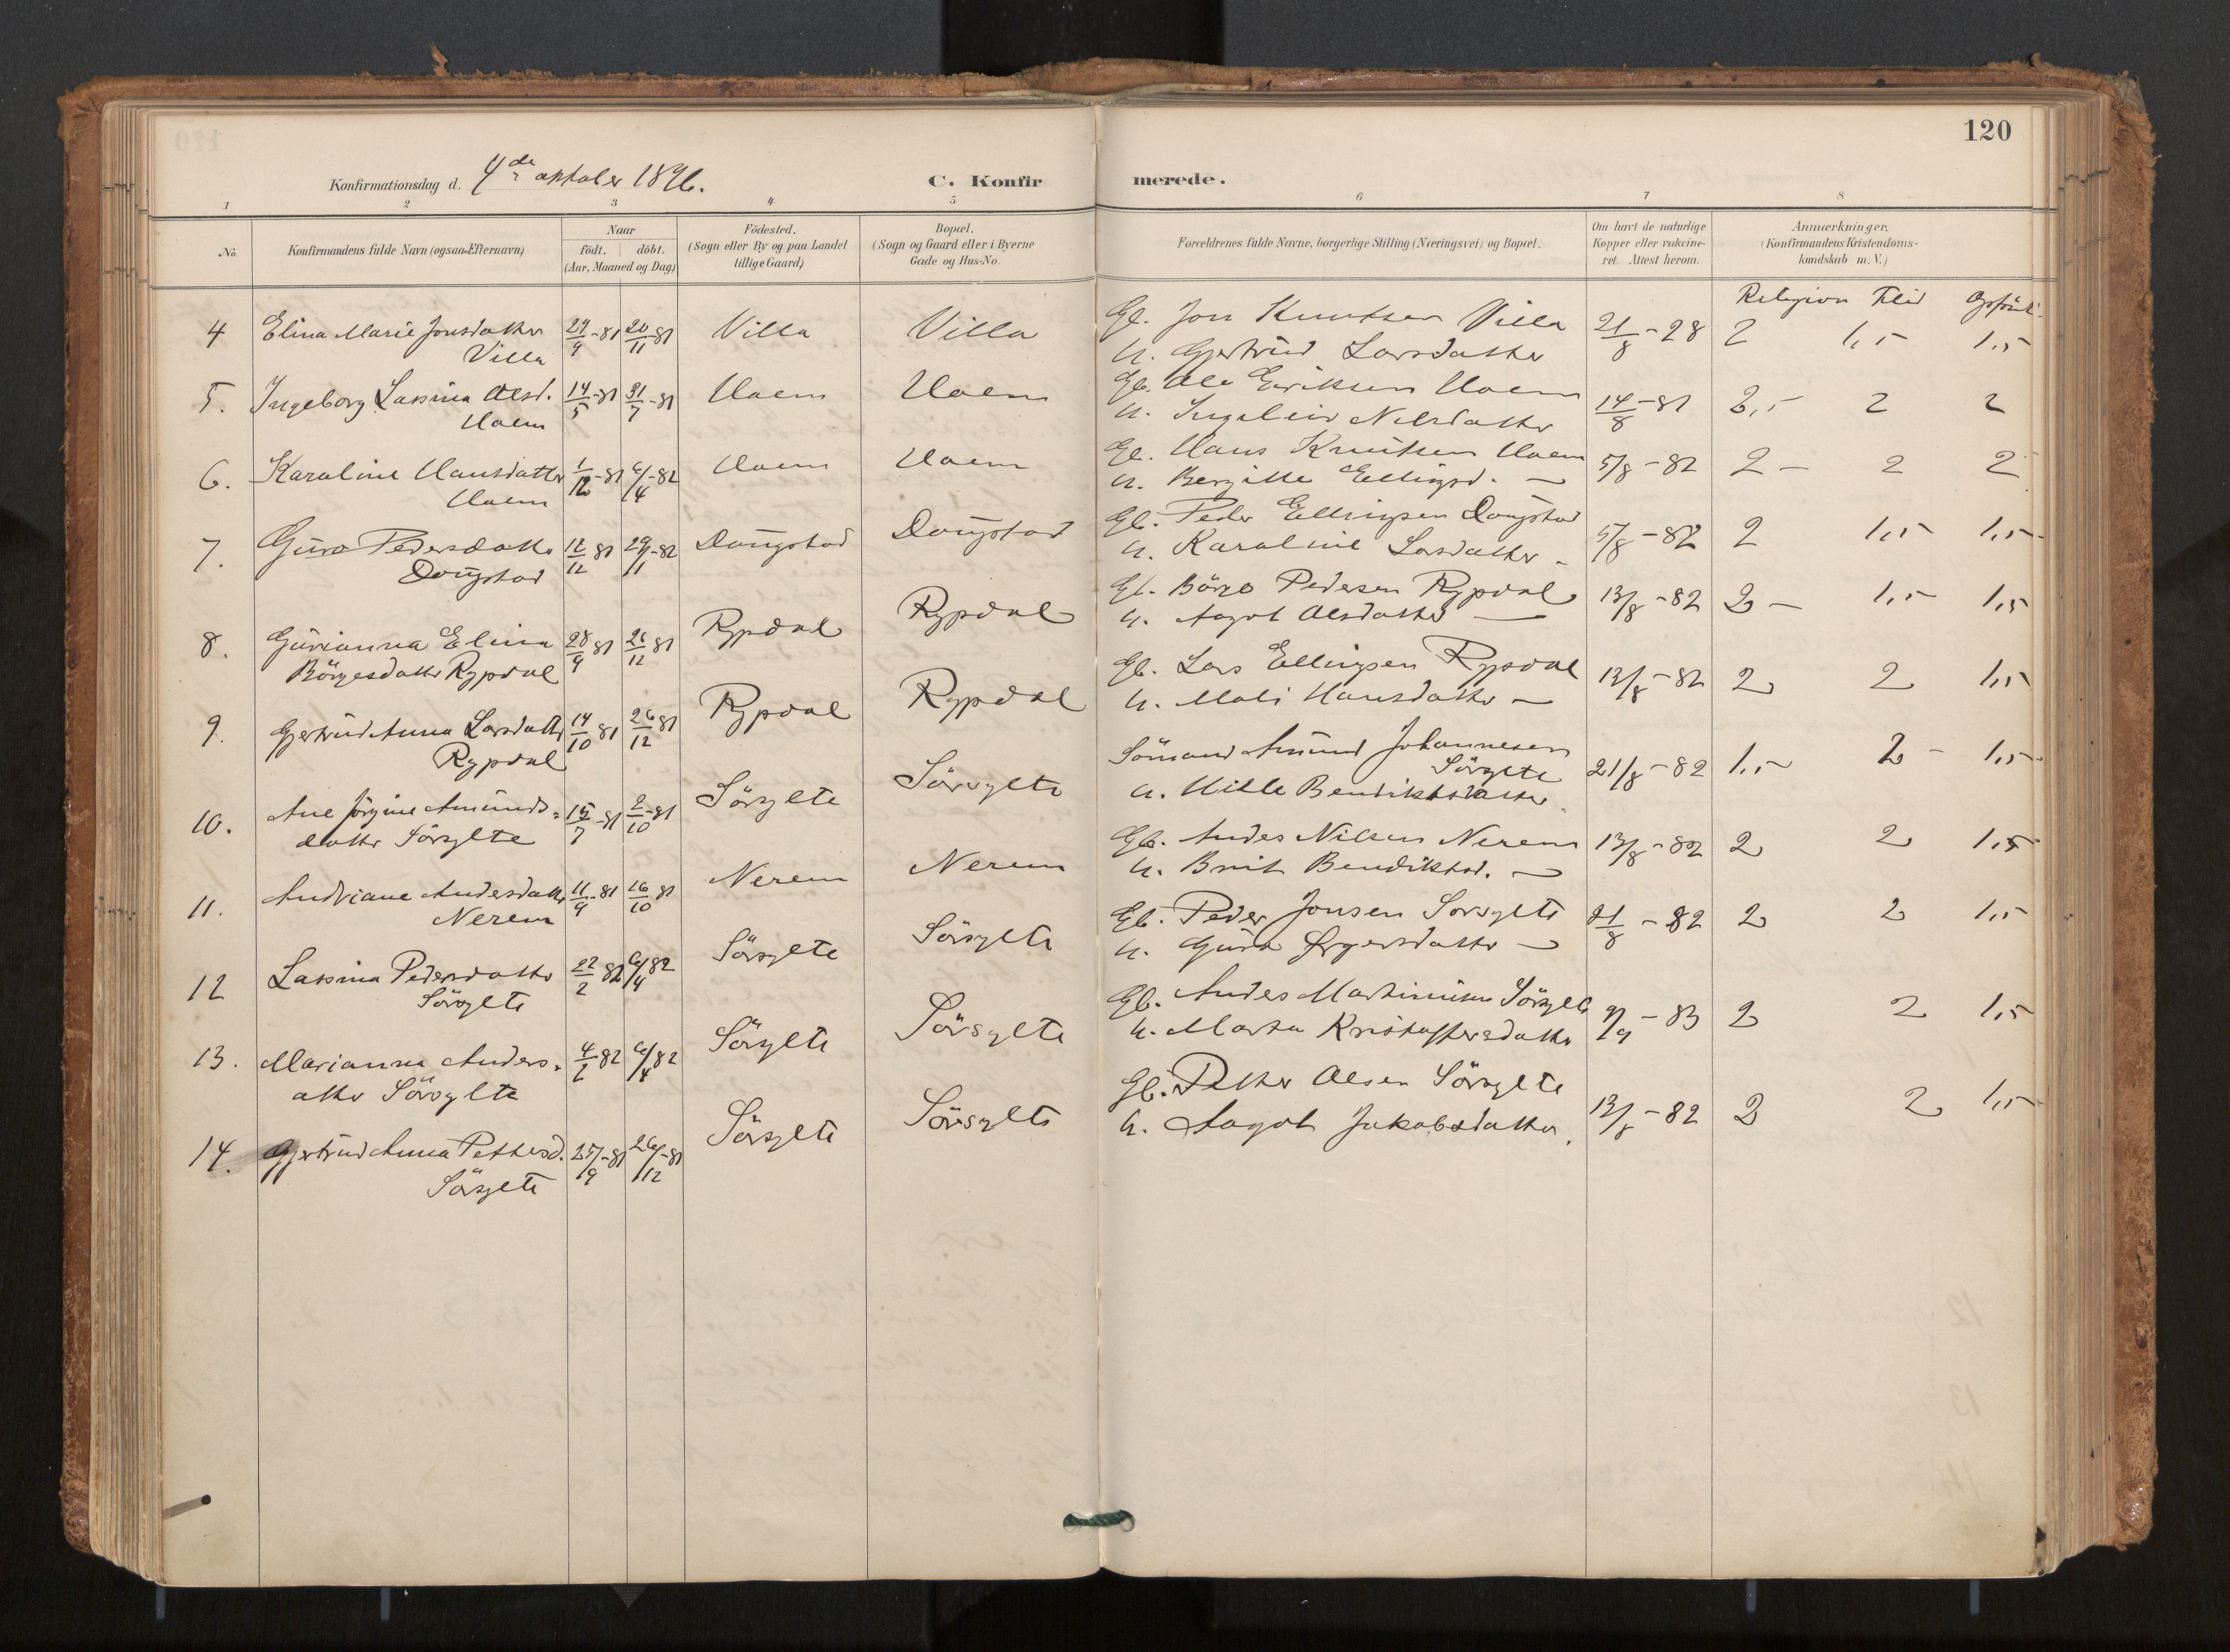 120
Konfirmationsdag d. 4de oktober 1896.
C. Konfirmerede.
1 2 3 4 5 6 7 8
No. Konfirmandens fulde Navn (ogsaa Efternavn) Naar födt. döbt. (Aar, Maaned og Dag) Födested. (Sogn eller By og paa Landet tillige Gaard) Bopæl. (Sogn og Gaard eller i Byerne Gade og Hus-No. Forældrenes fulde Navne, borgerlige Stilling (Næringsvei) og Bopæl. Om havt de naturlige Kopper eller vaccineret. Attest herom. Anmærkninger. (Konfirmandens Kristendomskundskab m. V.)
Religion Flid
4 Elina Marie Jonsdatter 29/9-81 20/11-81 Villa Villa Gb. Jon Knutsen Villa 21/8-28 2 1,5 1,5
Villa h. Gjertrud Larsdatter
5. Ingeborg Lassina Olsd. 14/5-81 31/7-81 Hoem Hoem Gb. Ole Eriksen Hoem 14/8-81 2,5 2 2
Hoem h. Ingeleiv Nilsdatter
6. Karoline Hansdatter 1/12-81 6/4-82 Hoem Hoem Gb. Hans Knutsen Hoem 5/8-82 2- 2 2
Hoem h. Bergitte Ellingsd. —
7. Guro Pedersdatter 12/12 81 29/11-82 Dougstad Dougstad Gb. Peder Ellingsen Dougstad 5/8-82 2 1,5 1,5
Dougstad h. Karoline Larsdatter -
8. Gurianna Elina 28/9 81 26/12 81 Rypdal Rypdal Gb. Börge Pedersen Rypdal 13/8-82 2- 1,5 1,5
Börgesdatter Rypdal h. Aagot Olsdatter —
9. Gjertrud Anna Larsdatter 14/10 81 26/12 81 Rypdal Rypdal Gb. Lars Ellingsen Rypdal 13/8-82 2 2 1,5
Rypdal h. Mali Hansdatter —
10. Ane Jörgine Amunds= 15/7-81 2/10-81 Sörsylte Sörsylte Sömand Amund Johannesen 21/8-82 1,5 2- 1,5
datter Sörsylte Sörsylte
h. Mille Bendiktsdatter
11. Andriane Andersdatter 11/9-81 16/10 81 Nerem Nerem Gb. Anders Nilsen Nerem 13/8-82 2 2 1,5
Nerem h. Brit Bendiktsd. —
12 Lassina Pedersdatter 22/2 82 6/4 82 Sörsylte Sörsylte Gb. Peder Jonsen Sörsylte 21/8-82 2 2 1,5
Sörsylte h. Guro —
13. Marianna Anders= 4/2-82 6/4 82 Sörsylte Sörsylte Gb. Anders Martinusen Sörsylte 9/9-83 2 2 1,5
atter Sörsylte h. Marta Kristoffersdatter
14. Gjertrud Anna Pettersd. 25/9-81 26/12-81 Sörsylte Sörsylte Gb. Petter Olsen Sörsylte 13/8-82 2 2 1,5
Sörsylte h. Aagot Jakobsdatter.